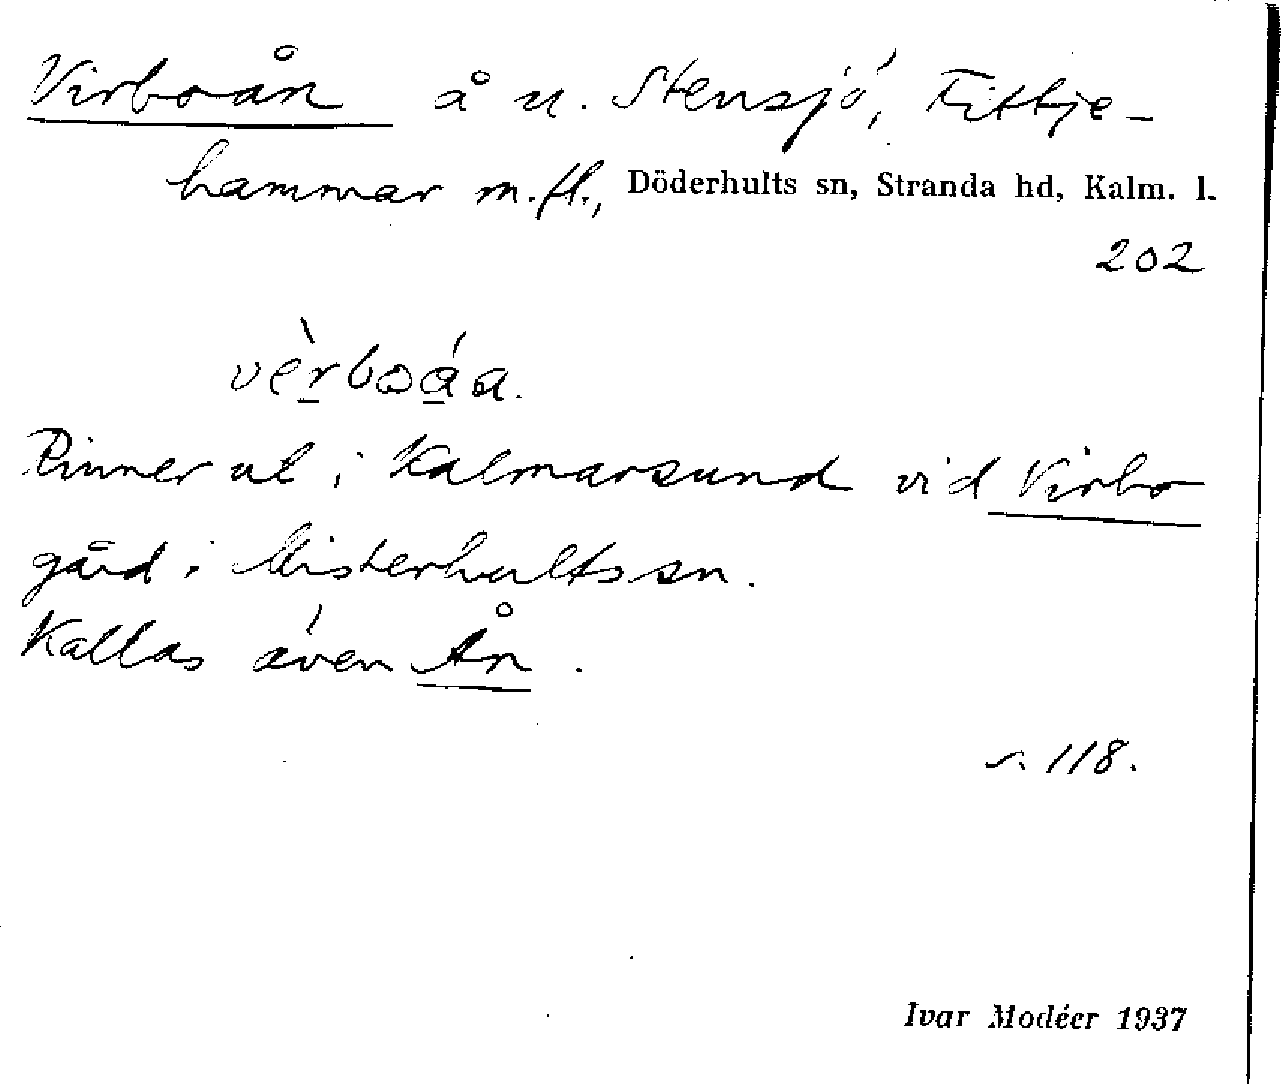 Virboån å u. Stensjö, Fittje-
hammar m.fl., Döderhults sn, Stranda hd, Kalm. l.
202
vèrboáa.
Rinner ut i Kalmarsund vid Virbo
gård i Misterhults sn.
Kallas även Ån.
s. 118.
Ivar Modéer 1937